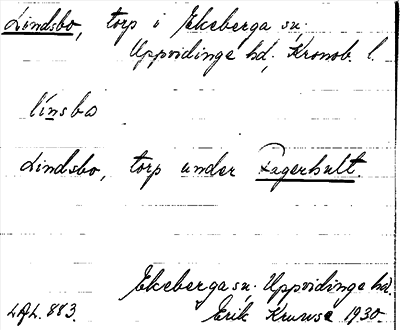 Lindsbo, torp i Ekeberga sn.
Uppvidinge hd, Kronob. l.
línsbo
Lindsbo, torp under Fagerhult.
Ekeberga sn. Uppvidinge hd.
LAL. 883. Erik Kruuse 1930.